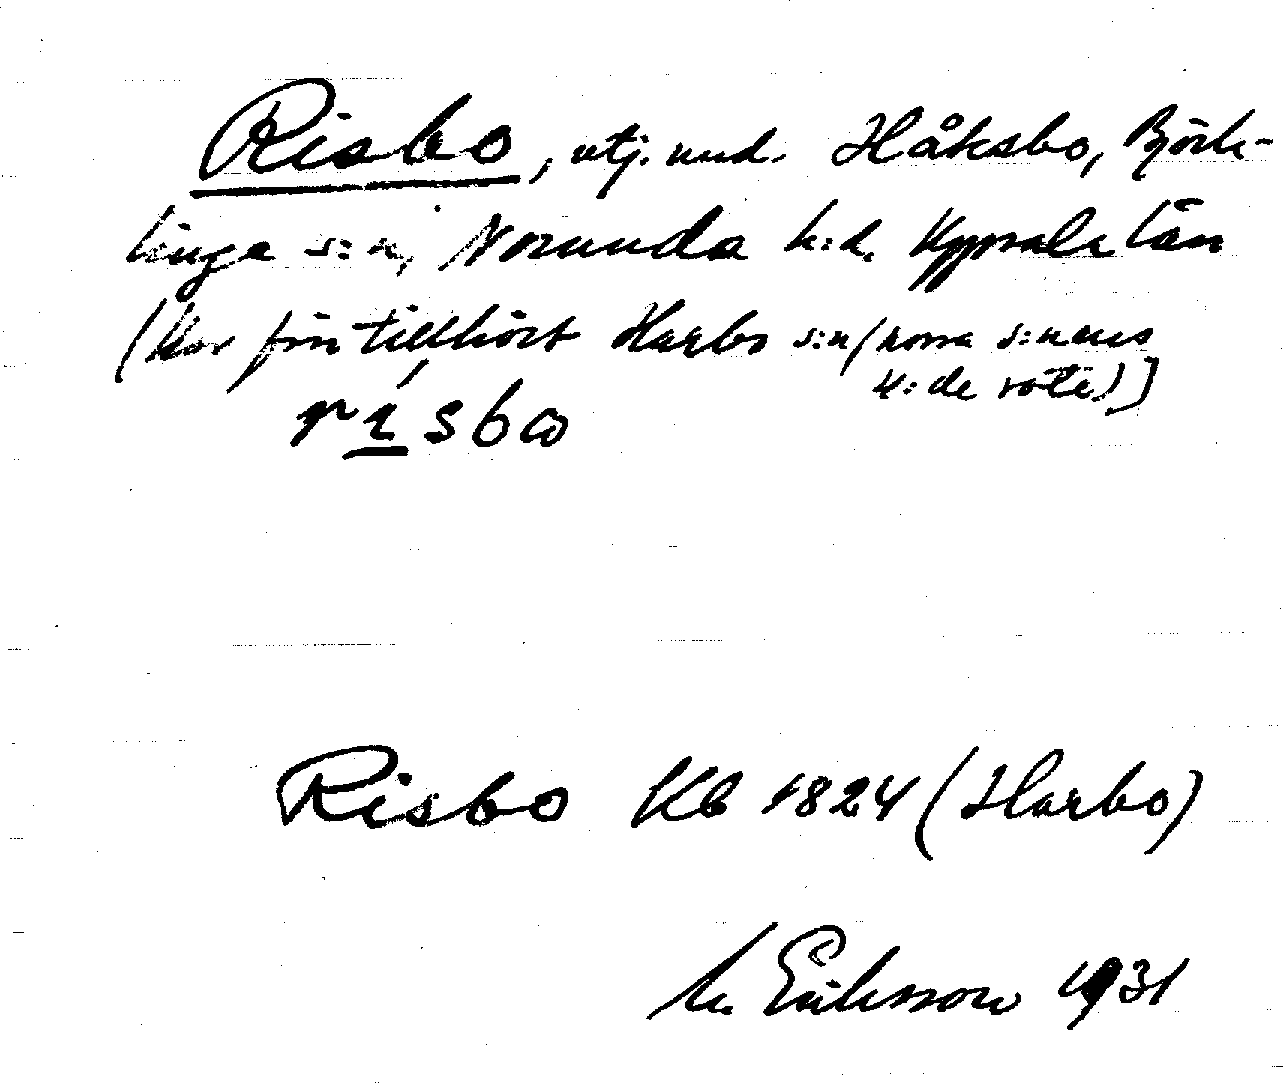 Risbo, utj. und. Håksbo, Björk-
linge s:n, Norunda h:d, Uppsala län
(har förr tillhört Harbo s:n (norra s:nens
4:de rote)]
rísbω
Risbo Kb 1824 (Harbo)
M. Eriksson 1931